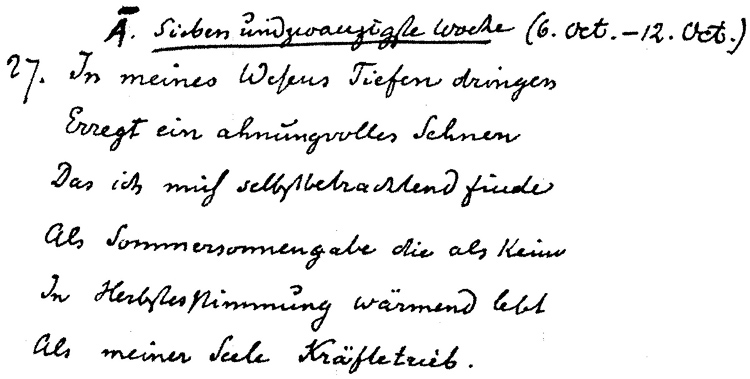 Ā. Siebenundzwanzigste Woche (6. Oct. – 12. Oct.)
27. In meines Wesens Tiefen dringen
Erregt ein ahnungsvolles Sehnen
Das ich mich selbstbetrachtend finde
Als Sommersonnengabe die als Keim
In Herbstesstimmung wärmend lebt
Als meiner Seele Kräftetrieb.